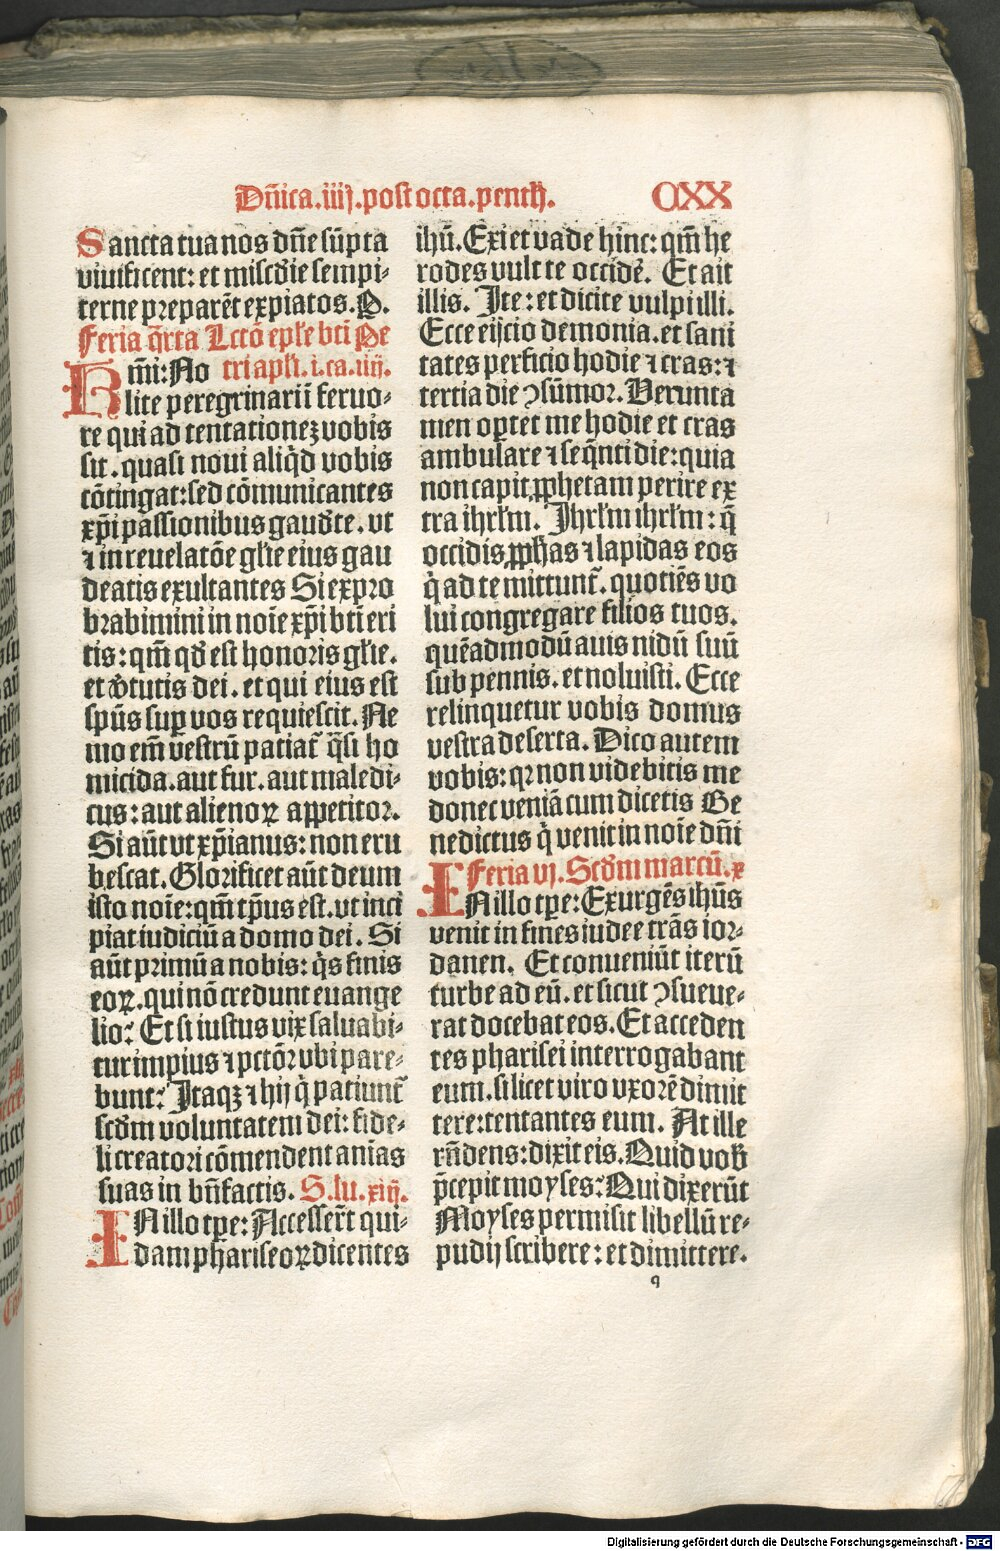 Dn̄ica.iiij.post octa.penth̄. CXX
Sancta tua nos dn̄e sūpta
viuificent: et misc̄die sempi-
terne preparēt expiatos. P.
Feria q̄rta Lctō epl̄e bti Pe
tri apl̄i. i. ca. iiij.
Kr̄mi: No
lite peregrinari i feruo-
re qui ad tentationeꝫ vobis
fit. quasi noui aliq̄d vobis
cōtingat: sed cōmunicantes
xp̄i passionibus gaud̄te. vt
⁊ in reuelatōe gl̄ie eius gau
deatis exultantes Si expro
brabimini in noīe xp̄i bt̄i eri
tis: qm̄ qd̄ est honoris gl̄ie.
et v̄tutis dei. et qui eius est
spūs suꝑ vos requiescit. Ne
mo em̄ vestrū patiat᷑ q̄si ho
micida. aut fur. aut maledi-
cus: aut alienoꝝ appetitor.
Si aūt vt xp̄ianus: non eru
bescat. Glorificet aūt deum
isto noīe: qm̄ tp̄us est. vt inci
piat iudiciū a domo dei. Si
aūt primū a nobis: q̄s finis
eoꝝ. qui nō credunt euange
lio? Et si iustus vix saluabi-
tur impius ⁊ pctōꝛ vbi pare-
bunt? Itaqꝫ ⁊ hij q̄ patiunt᷑
scd̄m voluntatem dei: fide-
li creatori cōmendent aīas
suas in bn̄factis. S. lu. xiij.
IN illo tꝑe: Accesserūt qui-
dam phariseoꝝ dicentes
ihū. Exi et vade hinc: qm̄ he
rodes vult te occidē. Et ait
illis. Ite: et dicite vulpi illi.
Ecce eijcio demonia. et sani
tates perficio hodie ⁊ cras: ⁊
tertia die ꝯsūmor. Verunta
men oꝑtet me hodie et cras
ambulare ⁊ seq̄nti die: quia
non capit ꝓphetam perire ex
tra ihrl̄m. Ihrl̄m ihrl̄m: q̄
occidis ꝓph̄as ⁊ lapidas eos
q̄ ad te mittunt᷑. quotiēs vo
lui congregare filios tuos.
quēadmodū auis nidū suū
sub pennis. et noluisti. Ecce
relinquetur vobis domus
vestra deserta. Dico autem
vobis: qꝛ non videbitis me
donec veniā cum dicetis Be
nedictus q̄ venit in noīe dn̄i
Feria vj. Scd̄m marcū. x
IN illo tꝑe: Exurgēs ihūs
venit in fines iudee trās ior-
danen. Et conueniūt iterū
turbe ad eū. et sicut ꝯsueue-
rat docebat eos. Et acceden
tes pharisei interrogabant
eum. si licet viro vxorē dimit
tere: tentantes eum. At ille
rn̄dens: dixit eis. Quid vob̄
p̄cepit moyses? Qui dixerūt
Moyses permisit libellū re-
pudij scribere: et dimittere.
q
Digitalisierung gefördert durch die Deutsche Forschungsgemeinschaft - DFG